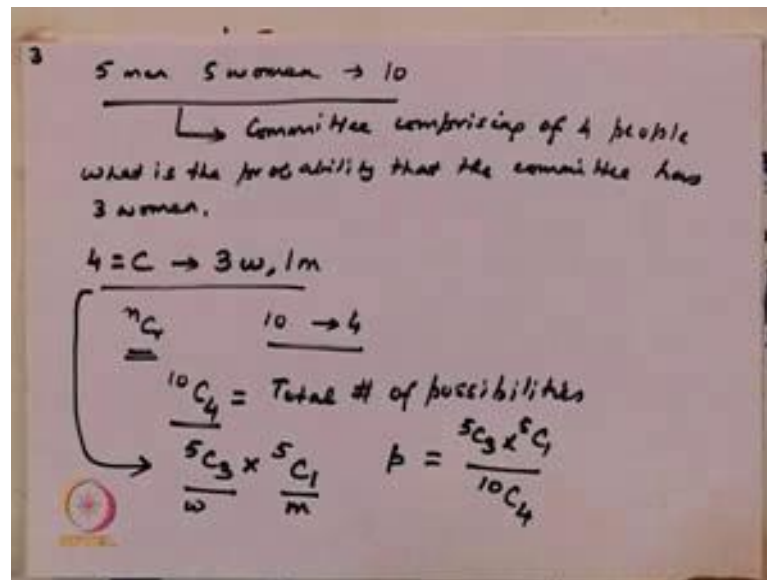 3
5 men 5 women → 10
↳ Committee comprising of 4 people
what is the probability that the committee has
3 women.
4 = C → 3w, 1m
ⁿCᵣ 10 → 4
¹⁰C₄ = Total # of possibilities
⁵C₃ × ⁵C₁ p = ⁵C₃ x ⁵C₁ / ¹⁰C₄
w m